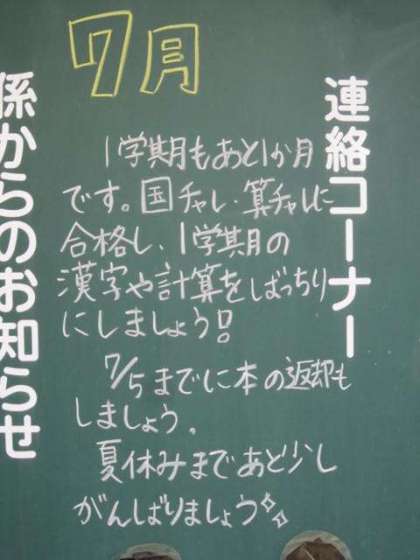 7月
連絡コーナー
1学期もあと1か月
です。国チャレ・算チャレに
合格し、1学期の
漢字や計算をばっちり
にしましょう!
7/5までに本の返却も
しましょう。
夏休みまであと少し
がんばりましょう
係からのお知らせ